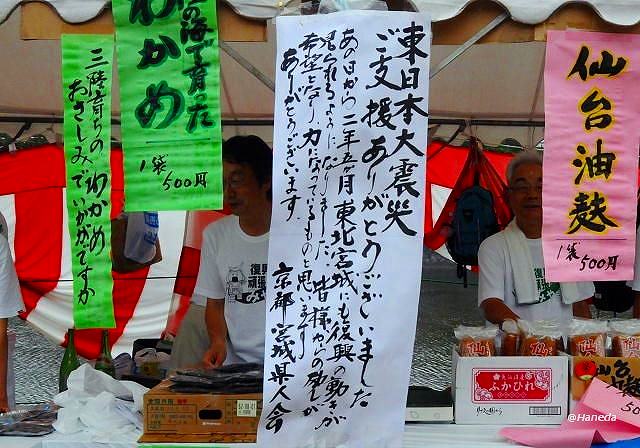 三陸育ちの
おさしみでいかがですか
わかめ
の海で育った
わかめ
1袋
500円
東日本大震災
ご支援ありがとうございました
あの日から二年五ヶ月 東北宮城にも復興の動きが
見られるようになりました。皆様からの励しが
希望となり、力になっているものと思います
ありがとうございます。
京都宮城県人会
仙台油麩
1袋
500円
復興
頑張
ふかひれ
仙台
50
@Haneda